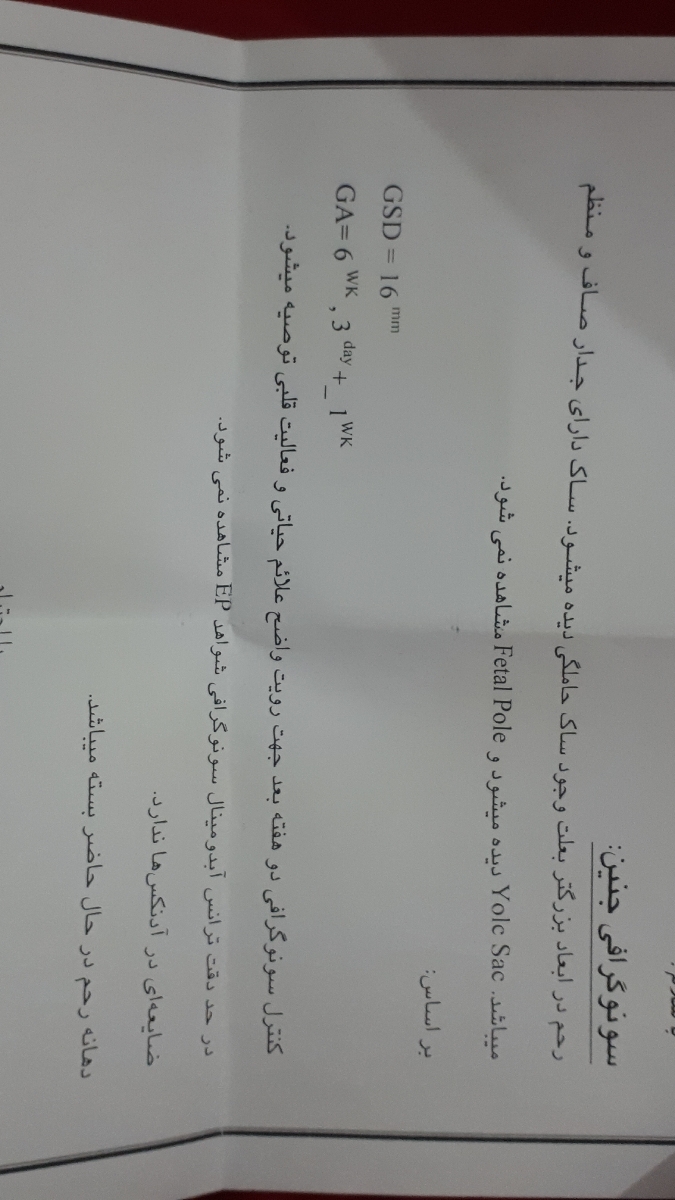 سونوگرافی جنین:
رحم در ابعاد بزرگتر بعلت وجود ساک حاملگی دیده میشود. ساک دارای جدار صاف و منظم
میباشد. Yolc Sac دیده میشود و Fetal Pole مشاهده نمی شود.
بر اساس:
GSD = 16 mm
GA= 6 WK , 3 day +_ 1 WK
کنترل سونوگرافی دو هفته بعد جهت رویت واضح علائم حیاتی و فعالیت قلبی توصیه میشود.
در حد دقت ترانس آبدومینال سونوگرافی شواهد EP مشاهده نمی شود.
ضایعه‌ای در آدنکس‌ها ندارد.
دهانه رحم در حال حاضر بسته میباشد.